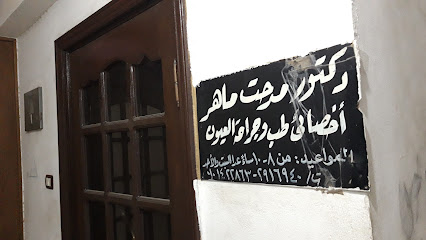 دكتور مدحت ماهر
أخصائى طب وجراحة العيون
المواعيد: من ٨-١٠ مساءً عدا السبت والأحد
ت/ ٢٩١٦٩٤٠-